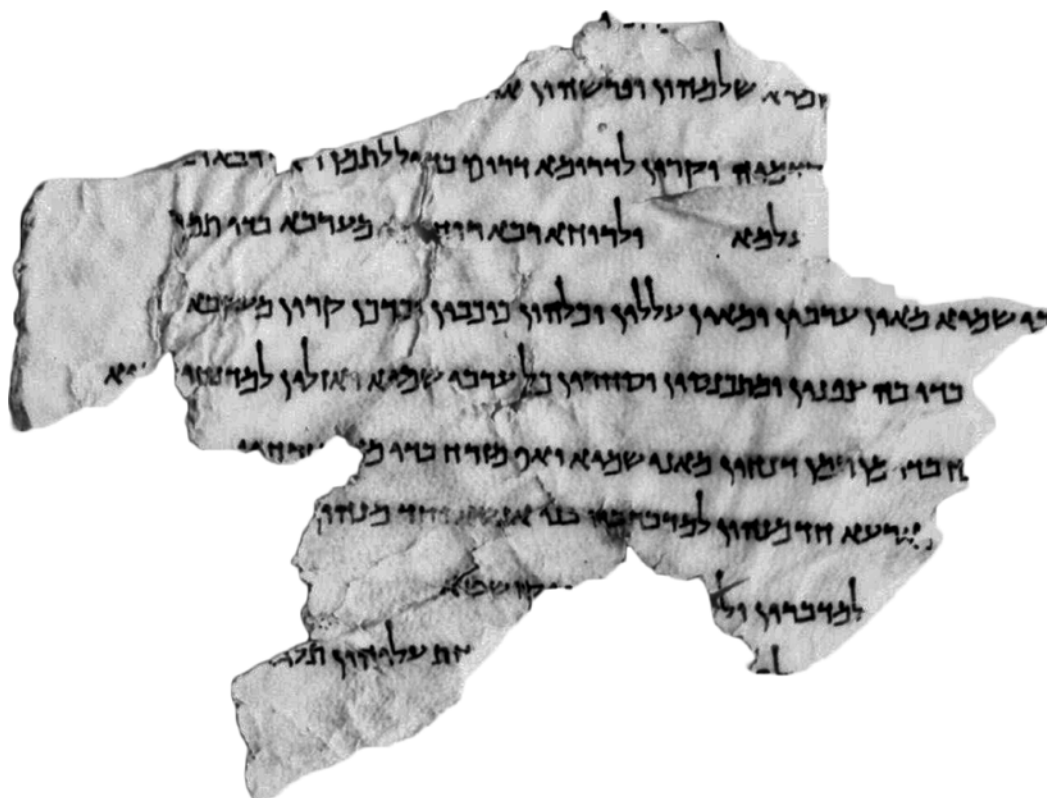 שלמהון ופרשהון
וקרין לדרומא דרום בדיל לתמן דאר
עלמא ולרוחא רבא רוח מערבא בדי תמן
בי שמיא מאין ערבין ומאין עללין וכלהון כוכבין ובדכן קרין מערבא
בדי בה צפנין ומתכנסין וסחרין כל ערבי שמיא ואזלין למדנחי שמיא
ח בדי מן תמן דנחין מאני שמיא ואף מזרח בדי
ארעא חד מנהון למדבה בה בני אנשא וחד מנהון
למדברין ול קושטא
את עליהון תלג